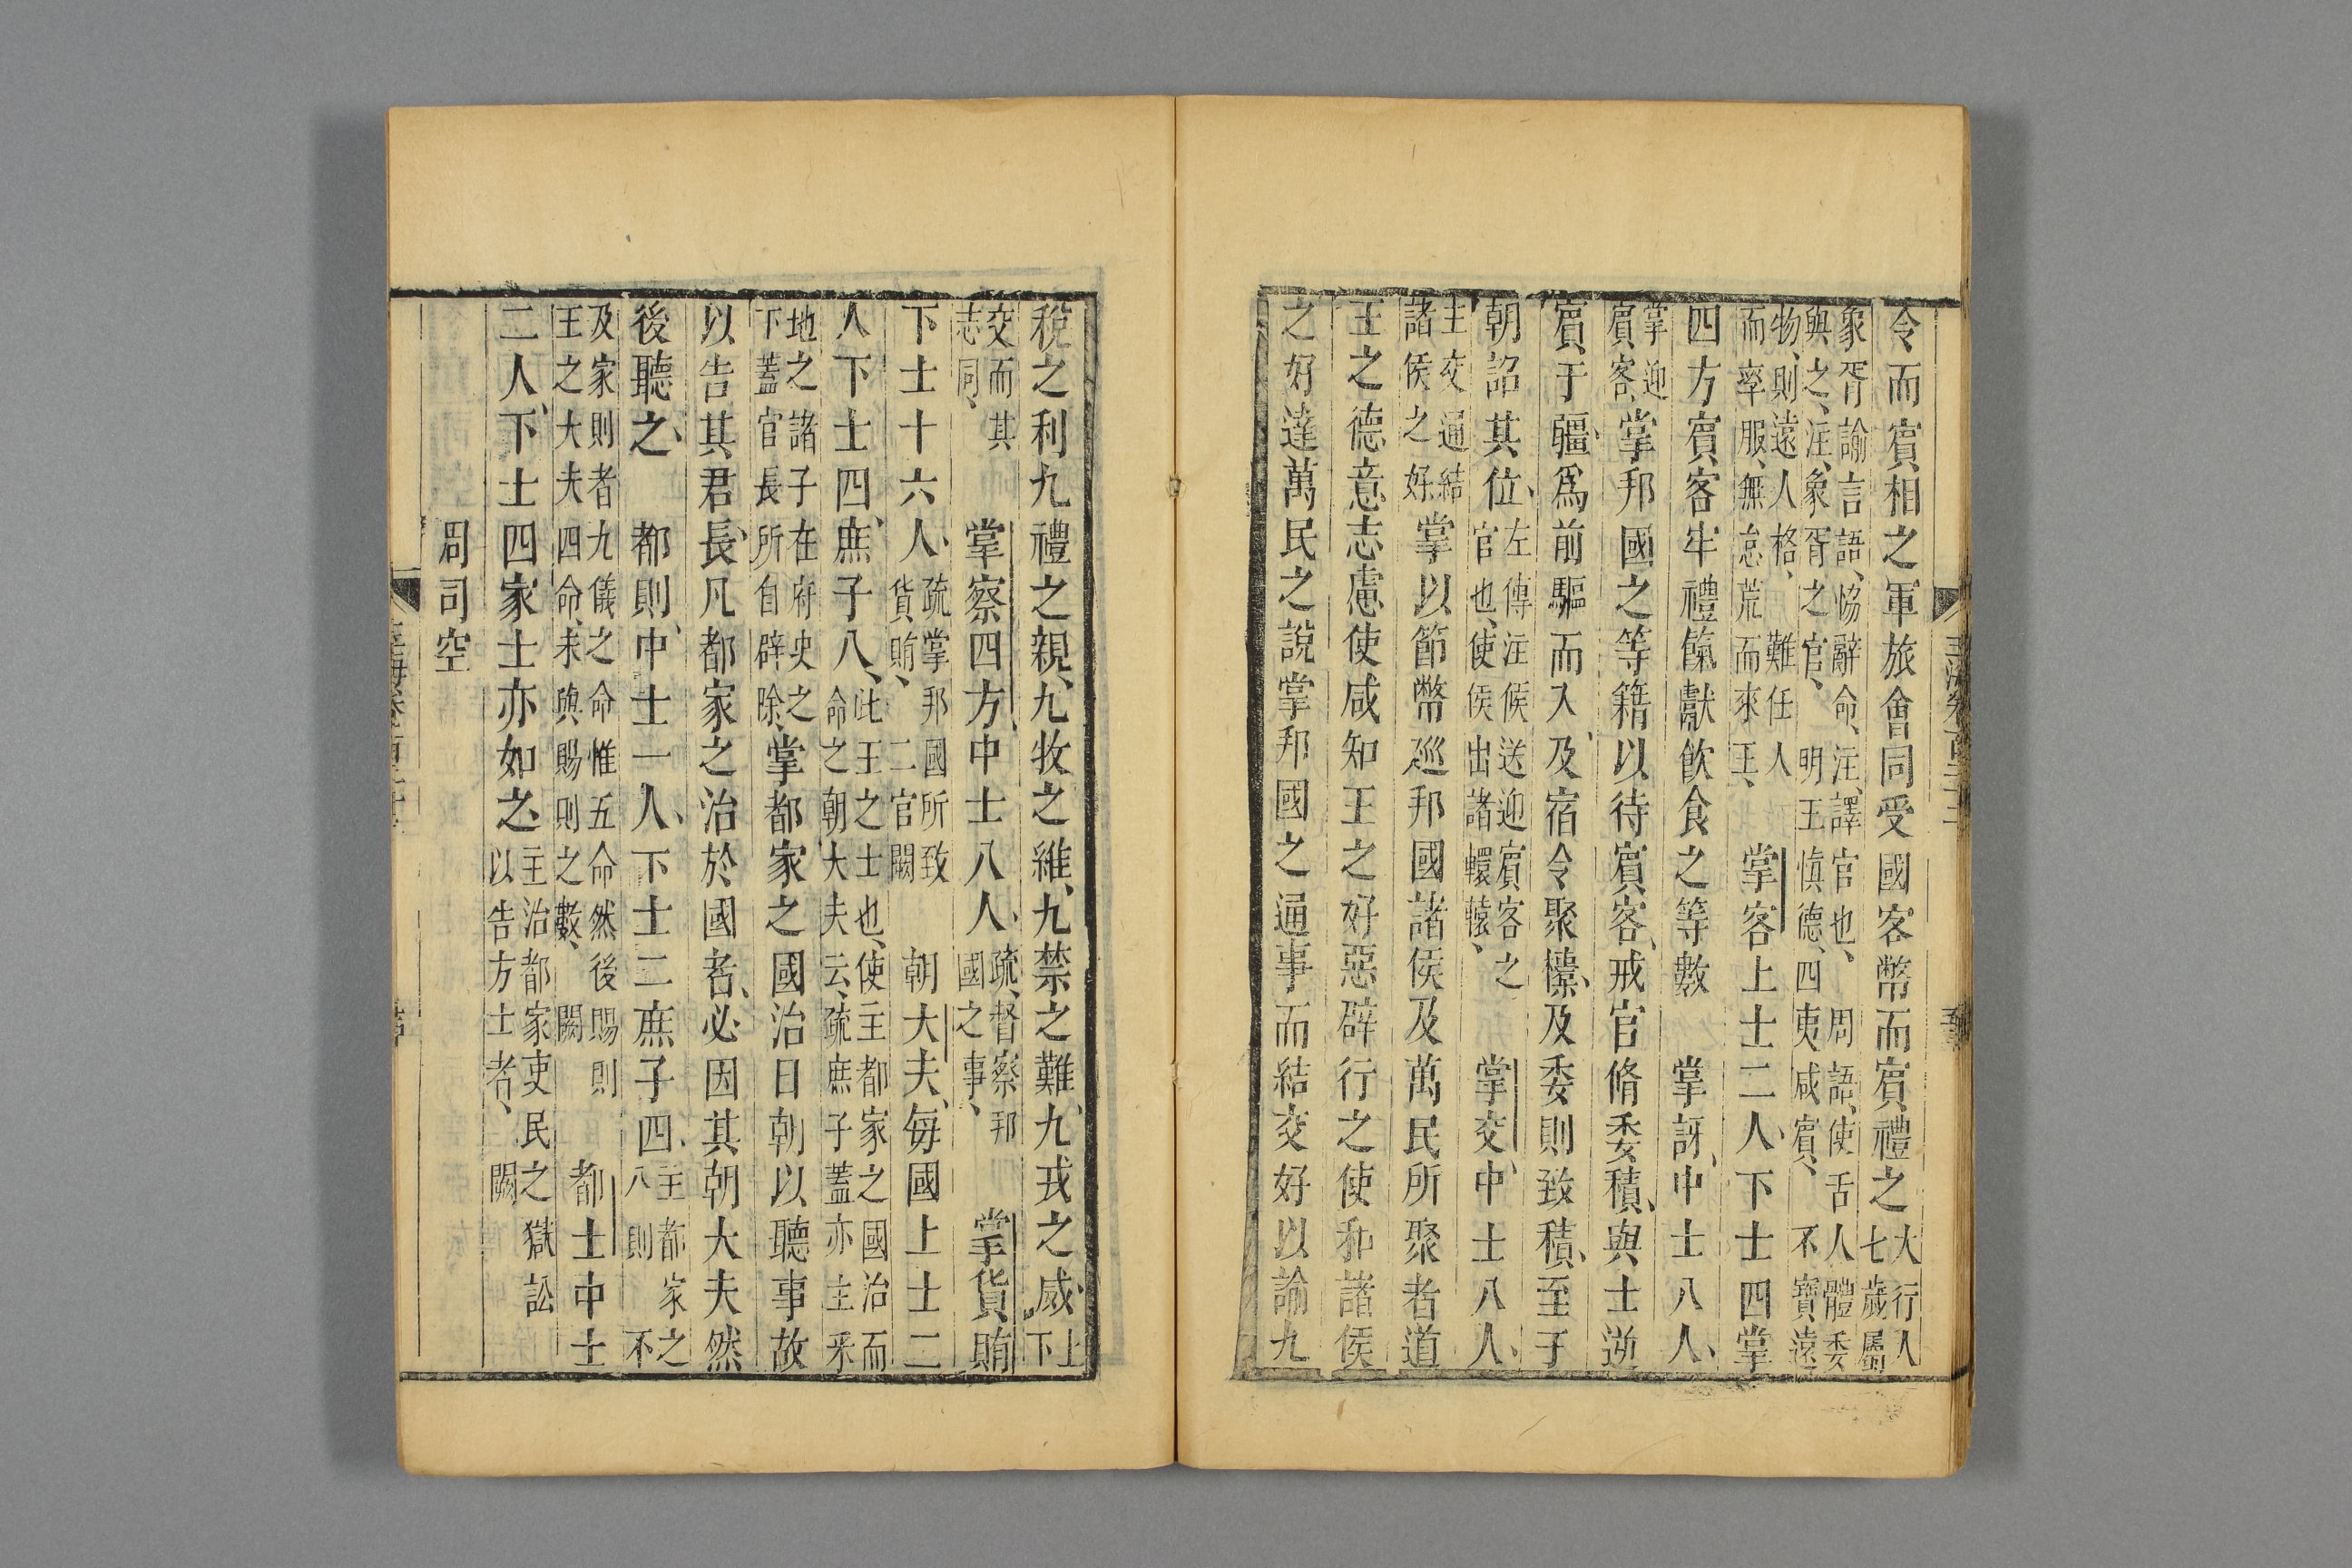 令而賓相之軍旅會同受國客幣而賓禮之大行人七歲屬
象胥諭言語、恊辭命、注、譯官也、周語、使舌人體委
與之、注、象胥之官、明王慎德、四夷咸賓、不寶遠
物、則遠人格、難任人
而率服、無怠荒而來王、掌客上士二人、下士四掌
四方賓客牢禮餼獻飲食之等數掌訝、中士八人、
掌迎賓客、掌邦國之等籍以待賓客、戒官脩委積、與士逆
賓、于疆、爲前驅而入、及宿令聚㯿、及委則致積、至于
朝詔其位、左傳注候送迎賓客之官也、使侯出諸轘轅、掌交、中士八人、
主交通結諸侯之好掌以節幣巡邦國諸侯及萬民所聚者道
王之德意志慮使咸知王之好惡辟行之使和諸侯
之好達萬民之說掌邦國之通事而結交好以諭九
稅之利九禮之親、九牧之維、九禁之難、九戎之威、上下
交而其志同、掌察四方、中士八人、疏、督察邦國之事、掌貨賄
下士十六人、疏掌邦國所致貨賄、二官闕朝大夫、每國上士二
人下士四、庶子八、此王之士也、使主都家之國治而命之朝大夫云、疏庶子蓋亦主采
地之諸子在府史之下蓋官長所自辟除、掌都家之國治日朝以聽事故
以告其君長、凡都家之治於國者、必因其朝大夫然
後聽之、都則、中士一人、下士二庶子四、主都家之八則不
及家則者九儀之命惟五命然後賜則
王之大夫四命、未與賜則之數、闕都士中士
二人、下士四家士亦如之、主治都家吏民之獄訟以告方士者、闕
周司空